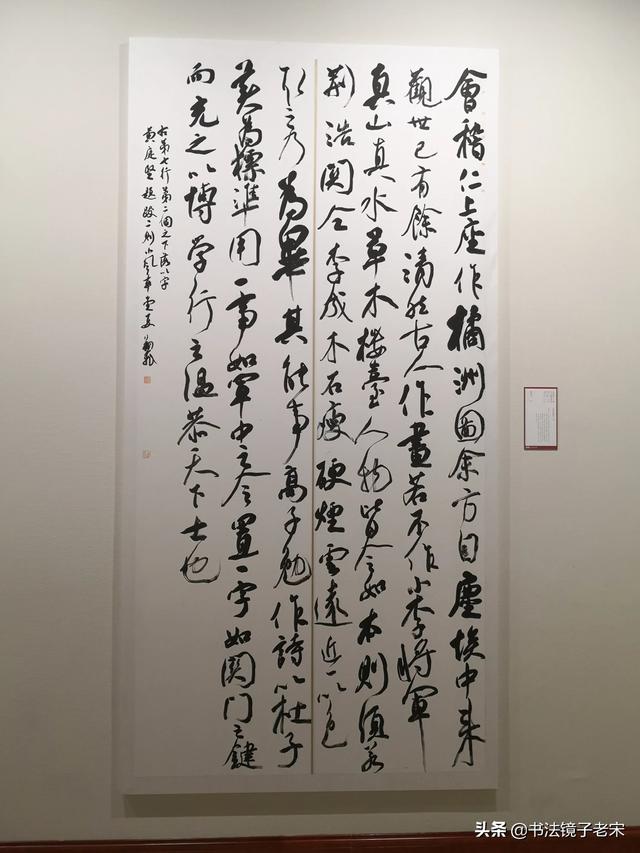 會稽仁上座作橘洲圖余方自塵埃中來
觀世已有餘清然古人作畫若不作小李將軍
真山真水草木樓臺人物皆令如本則須若
荊浩關仝李成木石瘦硬煙雲遠近一以色
取之乃為畢其能事高子勉作詩以杜子
美為標準用一事如軍中之令置一字如關門之鍵
而充之以博學行之溫恭天下士也
第七行第二個之下落以字
黃庭堅題跋二則
头条 @书法镜子老宋